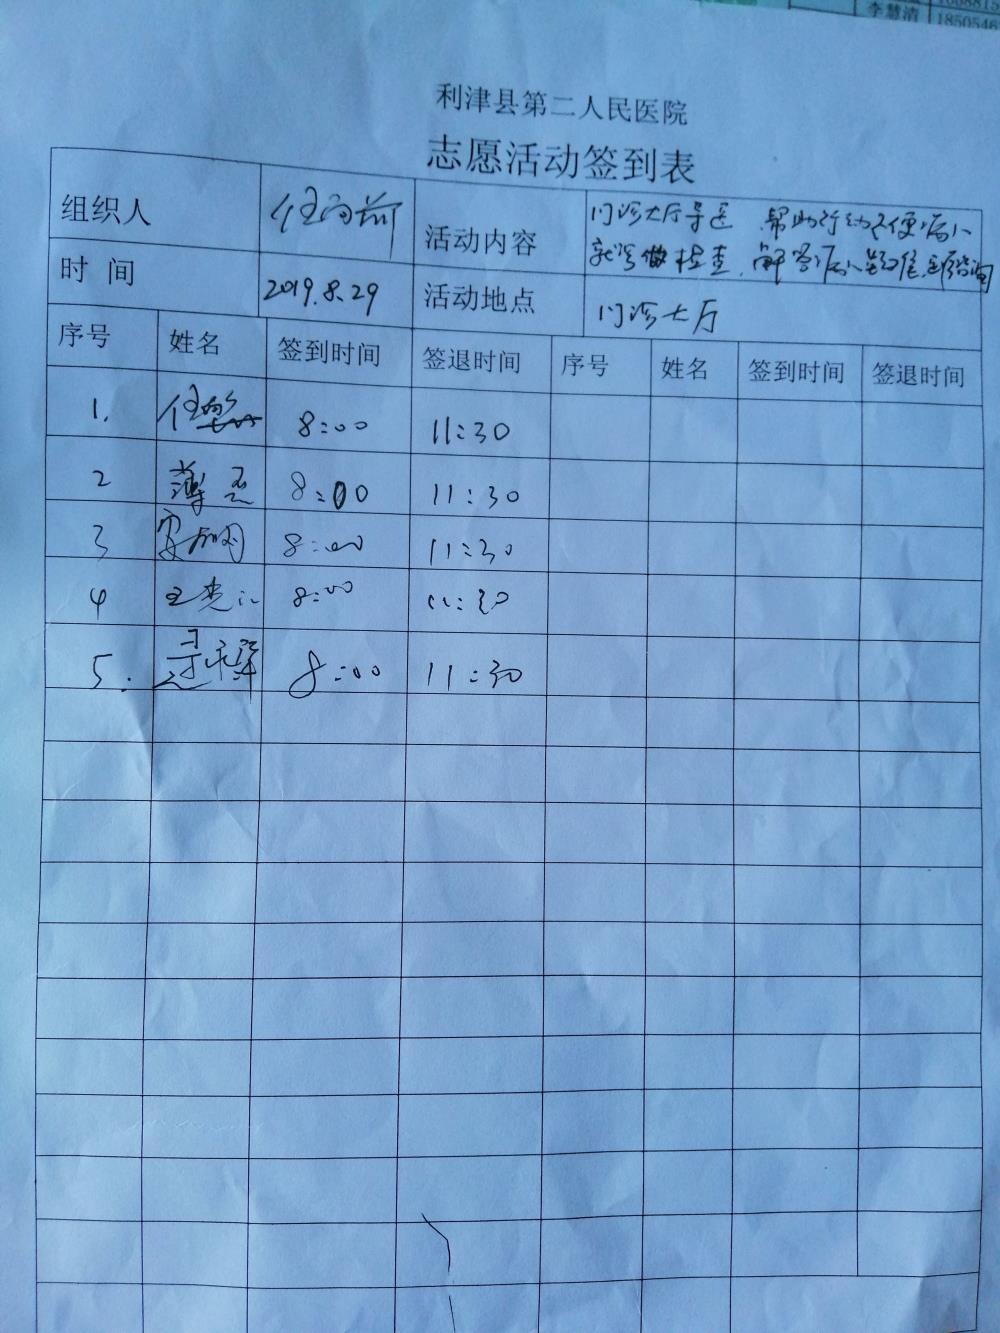 李慧清 185054
利津县第二人民医院
志愿活动签到表
组织人 任向前 活动内容 门诊大厅导医 帮助行动不便病人
就诊做检查,解答病人
时 间 2019.8.29 活动地点 门诊大厅
序号 姓名 签到时间 签退时间 序号 姓名 签到时间 签退时间
1. 8:00 11:30
2 薄 8:00 11:30
3 8:00 11:30
4 王 8:00 11:30
5. 8:00 11:30